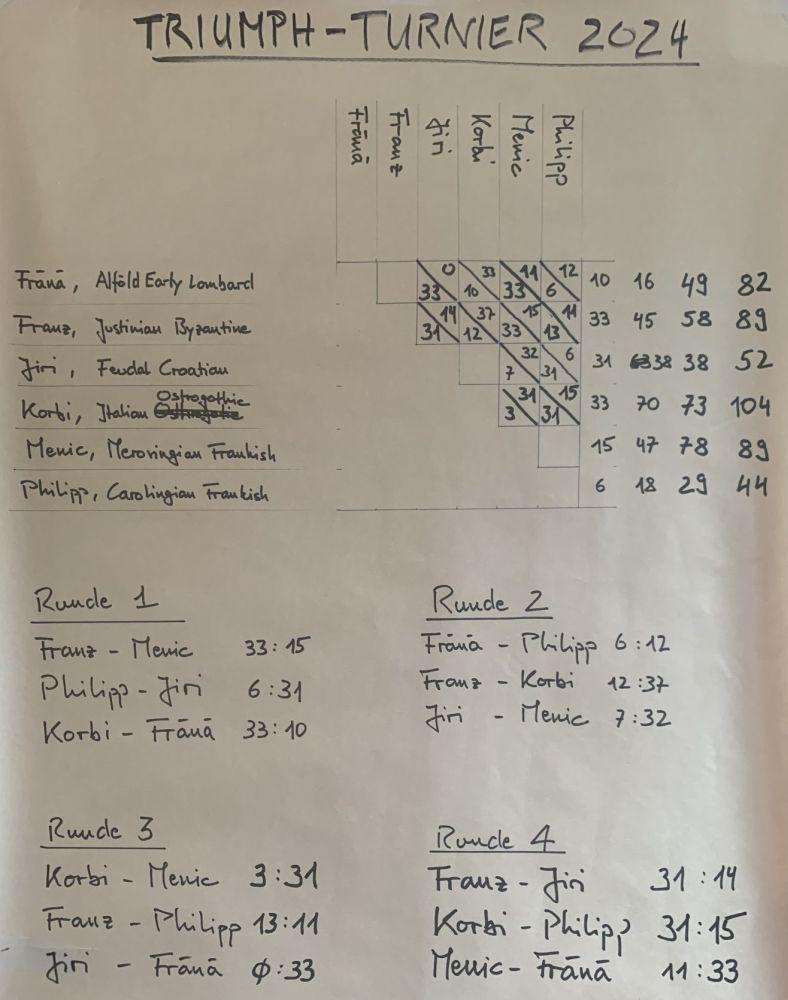 TRIUMPH-TURNIER 2024
Fränä Franz Jiri Korbi Meric Philipp
Fränä, Alföld Early Lombard 0 33 33 10 11 33 12 6 10 16 49 82
Franz, Justinian Byzantine 14 31 37 12 15 33 11 13 33 45 58 89
Jiri, Feudal Croatian 32 7 6 31 31 38 38 52
Korbi, Italian Ostrogothic 31 3 15 31 33 70 73 104
Meric, Merovingian Frankish 15 47 78 89
Philipp, Carolingian Frankish 6 18 29 44
Runde 1
Franz - Meric 33:15
Philipp - Jiri 6:31
Korbi - Fränä 33:10
Runde 2
Fränä - Philipp 6:12
Franz - Korbi 12:37
Jiri - Meric 7:32
Runde 3
Korbi - Meric 3:31
Franz - Philipp 13:11
Jiri - Fränä 0:33
Runde 4
Franz - Jiri 31:14
Korbi - Philipp 31:15
Meric - Fränä 11:33